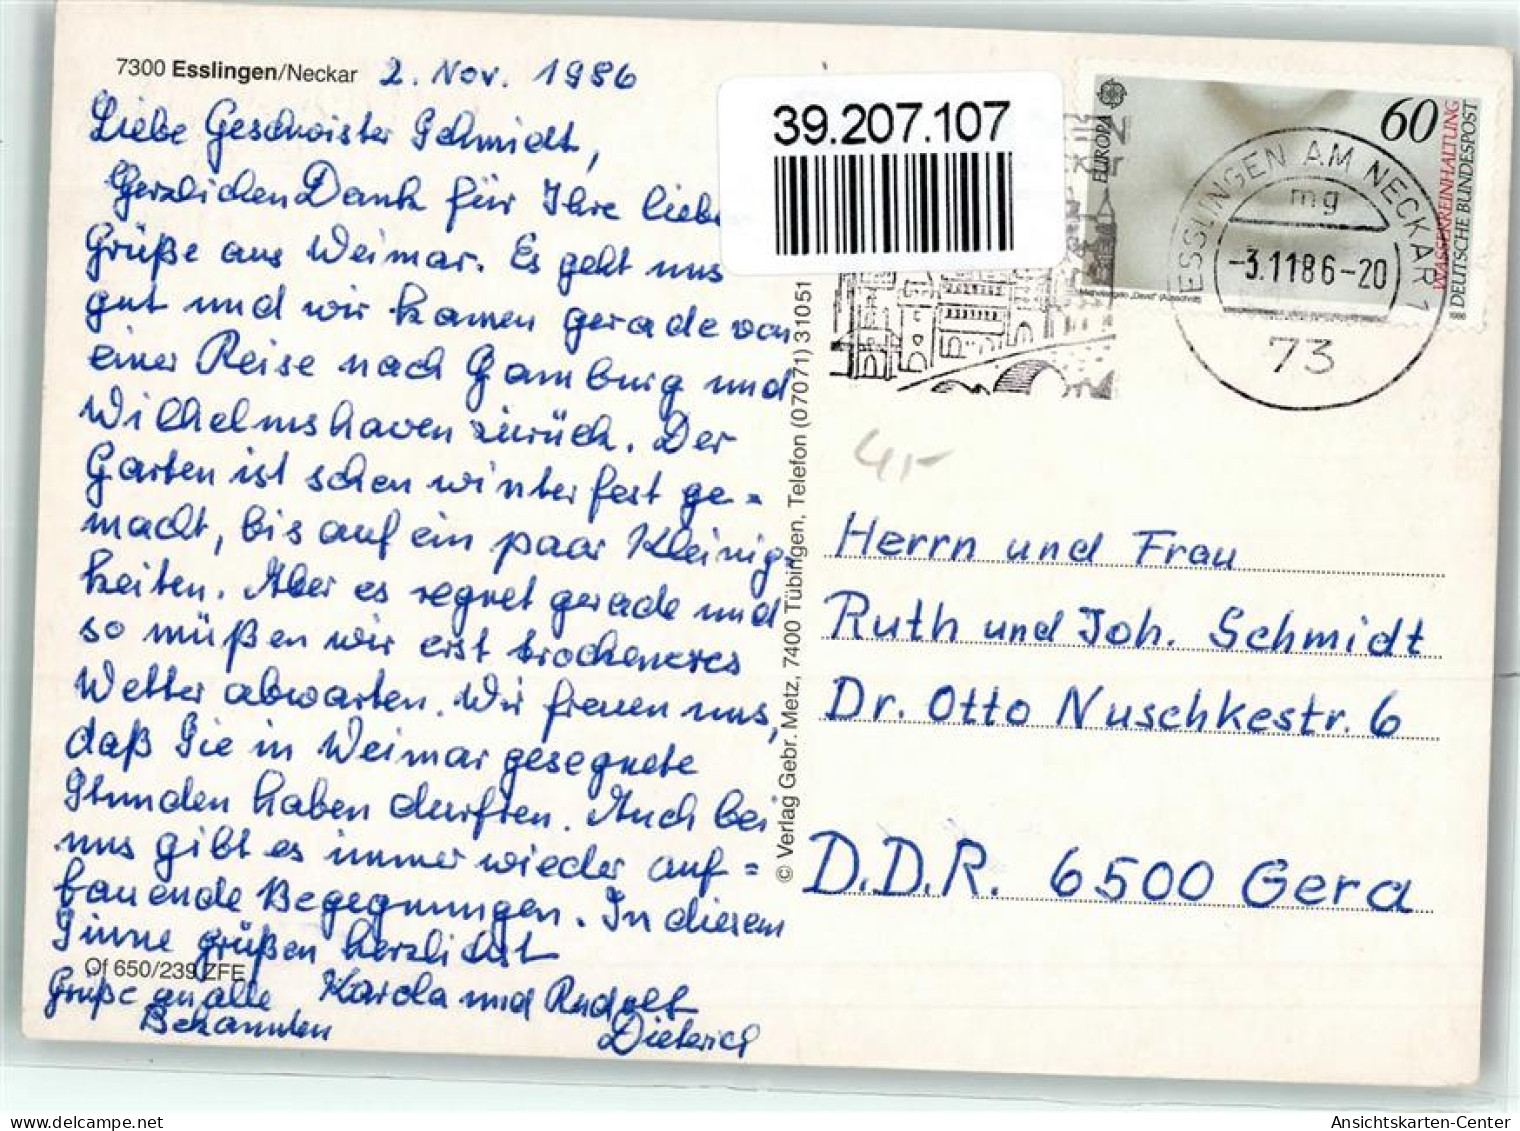 7300 Esslingen/Neckar 2. Nov. 1986
Liebe Geschwister Schmidt,
Herzlichen Dank für Ihre liebe
Grüße aus Weimar. Es geht uns
gut und wir kamen gerade von
einer Reise nach Hamburg und
Wilhelmshaven zurück. Der
Garten ist schon winterfest ge=
macht, bis auf ein paar Kleinig-
keiten. Aber es regnet gerade und
so müßen wir erst trockeneres
Wetter abwarten. Wir freuen uns,
daß Sie in Weimar gesegnete
Stunden haben durften. Auch bei
uns gibt es immer wieder auf=
bauende Begegnungen. In diesem
Sinne grüßen herzlichst
Of 650/239 ZFE
Grüße an alle Karola und Rudolf
Bekannten Dieterich
© Verlag Gebr. Metz, 7400 Tübingen, Telefon (07071) 31051
39.207.107
EUROPA
60
WASSERREINHALTUNG
DEUTSCHE BUNDESPOST
Michelangelo „David" (Ausschnitt)
1986
ESSLINGEN AM NECKAR 1
mg
-3.1186-20
73
4,-
Herrn und Frau
Ruth und Joh. Schmidt
Dr. Otto Nuschkestr. 6
D.D.R. 6500 Gera
Ansichtskarten-Center